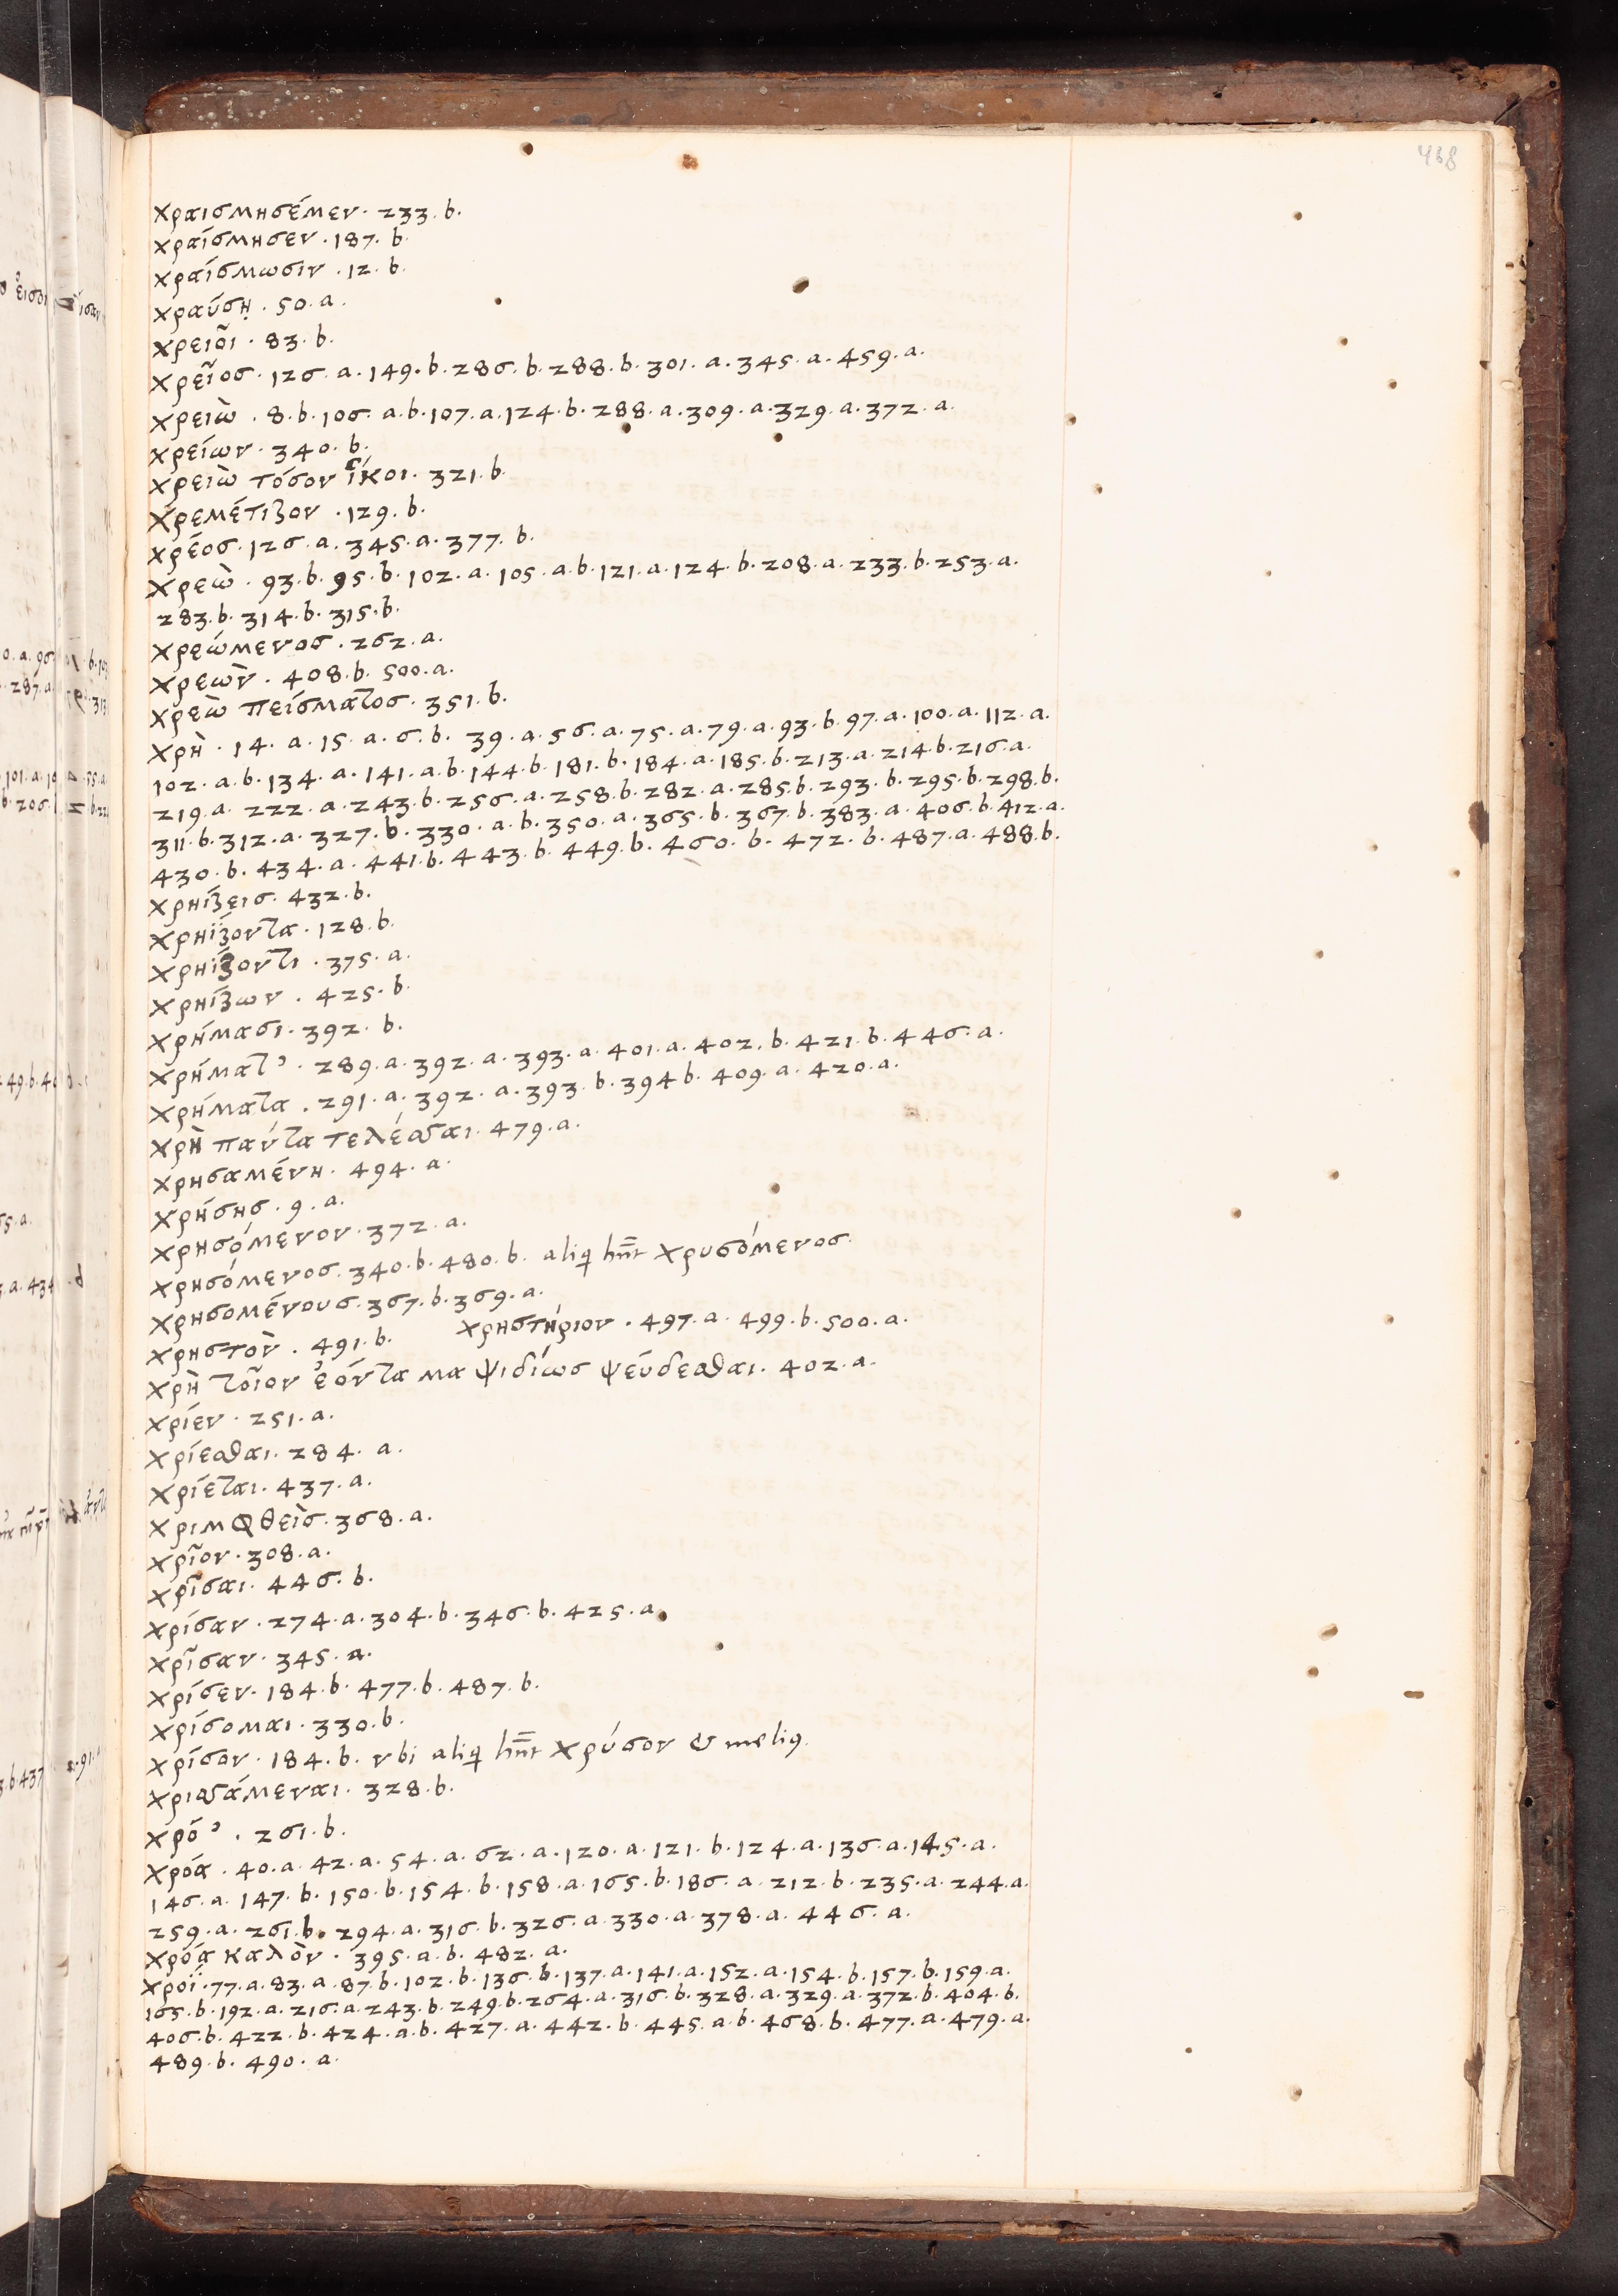 468
χραισμησέμεν · 233. b.
χραίσμησεν · 187. b.
χραίσμωσιν · 12. b.
χραύση · 50. a.
χρειοῖ · 83. b.
χρεῖος · 126. a. 149. b. 286. b. 288. b. 301. a. 345. a. 459. a.
χρειὼ · 8. b. 106. a. b. 107. a. 124. b. 288. a. 309. a. 329. a. 372. a.
χρείων · 340. b.
χρειὼ τόσον ἵκοι · 321. b.
χρεμέτιζον · 129. b.
χρέος · 126. a. 345. a. 377. b.
χρεὼ · 93. b. 95. b. 102. a. 105. a. b. 121. a. 124. b. 208. a. 233. b. 253. a.
283. b. 314. b. 315. b.
χρεώμενος · 262. a.
χρεὼν · 408. b. 500. a.
χρεὼ πείσματος · 351. b.
χρὴ · 14. a. 15. a. 6. b. 39. a. 56. a. 75. a. 79. a. 93. b. 97. a. 100. a. 112. a.
102. a. b. 134. a. 141. a. b. 144. b. 181. b. 184. a. 185. b. 213. a. 214. b. 216. a.
219. a. 222. a. 243. b. 256. a. 258. b. 282. a. 285. b. 293. b. 295. b. 298. b.
311. b. 312. a. 327. b. 330. a. b. 350. a. 365. b. 367. b. 383. a. 406. b. 412. a.
430. b. 434. a. 441. b. 443. b. 449. b. 460. b. 472. b. 487. a. 488. b.
χρηίζεις · 432. b.
χρηΐζοντα · 128. b.
χρηίζοντι · 375. a.
χρηίζων · 425. b.
χρήμασι · 392. b.
χρήματ' · 289. a. 392. a. 393. a. 401. a. 402. b. 421. b. 446. a.
χρήματα · 291. a. 392. a. 393. b. 394 b. 409. a. 420. a.
χρὴ πάντα τελέσθαι · 479. a.
χρησαμένη · 494. a.
χρήσης · 9. a.
χρησόμενον · 372. a.
χρησόμενος · 340. b. 480. b. aliq hn̄t χρυσόμενος
χρησομένους · 367. b. 369. a.
χρηστὸν · 491. b. χρηστήριον · 497. a. 499. b. 500. a.
χρὴ τοῖον ἐόντα μα ψιδίως ψεύδεσθαι · 402. a.
χρίεν · 251. a.
χρίεσθαι · 284. a.
χρίεται · 437. a.
χριμφθεὶς · 368. a.
χρῖον · 308. a.
χρῖσαι · 446. b.
χρίσαν · 274. a. 304. b. 346. b. 425. a.
χρῖσαν · 345. a.
χρίσεν · 184. b. 477. b. 487. b.
χρίσομαι · 330. b.
χρίσον · 184. b. vbi aliq hn̄t χρύσον & meliꝰ.
χρισάμεναι · 328. b.
χρό' · 261. b.
χρόα · 40. a. 42. a. 54. a. 62. a. 120. a. 121. b. 124. a. 136. a. 145. a.
146. a. 147. b. 150. b. 154. b. 158. a. 165. b. 186. a. 212. b. 235. a. 244. a.
259. a. 261. b. 294. a. 316. b. 326. a. 330. a. 378. a. 446. a.
χρόα καλὸν · 395. a. b. 482. a.
χροῒ · 77. a. 83. a. 87. b. 102. b. 136. b. 137. a. 141. a. 152. a. 154. b. 157. b. 159. a.
165. b. 192. a. 216. a. 243. b. 249. b. 264. a. 316. b. 328. a. 329. a. 372. b. 404. b.
406. b. 422. b. 424. a. b. 427. a. 442. b. 445. a. b. 468. b. 477. a. 479. a.
489. b. 490. a.